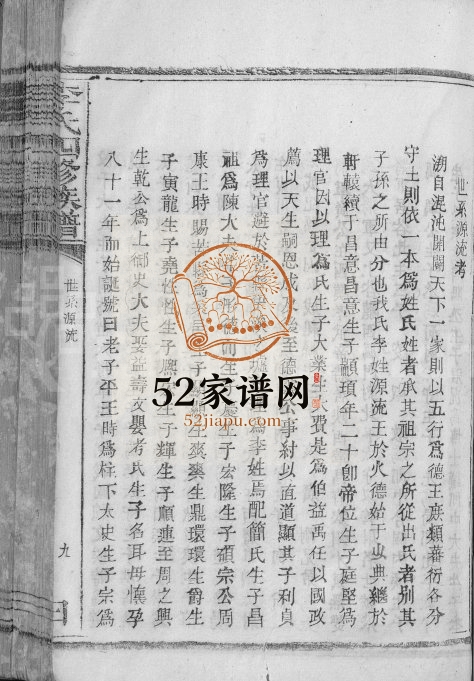 世系源流考
溯自混沌開闢天下一家則以五行爲德王庶類蕃衍各分
守土則依一本爲姓氏姓者承其祖宗之所從出氏者別其
子孫之所由分也我氏李姓源流王於火德始于 典繼於
軒轅續于昌意昌意生子顓頊年二十卽帝位生子庭堅爲
理官因以理爲氏生子大業生 費是爲伯益禹任以國政
薦以天生嗣恩成 至德 公事紂以直道顯其子利貞
爲理官避於 爲李姓焉配簡氏生子昌
祖爲陳大夫 生 生子宏隆生子 宗公周
康王時賜 生子 生 爽生鼎環環生爵生
子寅龍生子堯 性生子 生子輝生子順運至周之興
生乾公爲上御史大夫娶益壽文嬰考氏生子名耳母懷孕
八十一年而始誕號曰老子平王時爲柱下太史生子宗爲
李氏四修族譜
世系源流
九
52家谱网
52jiapu.com